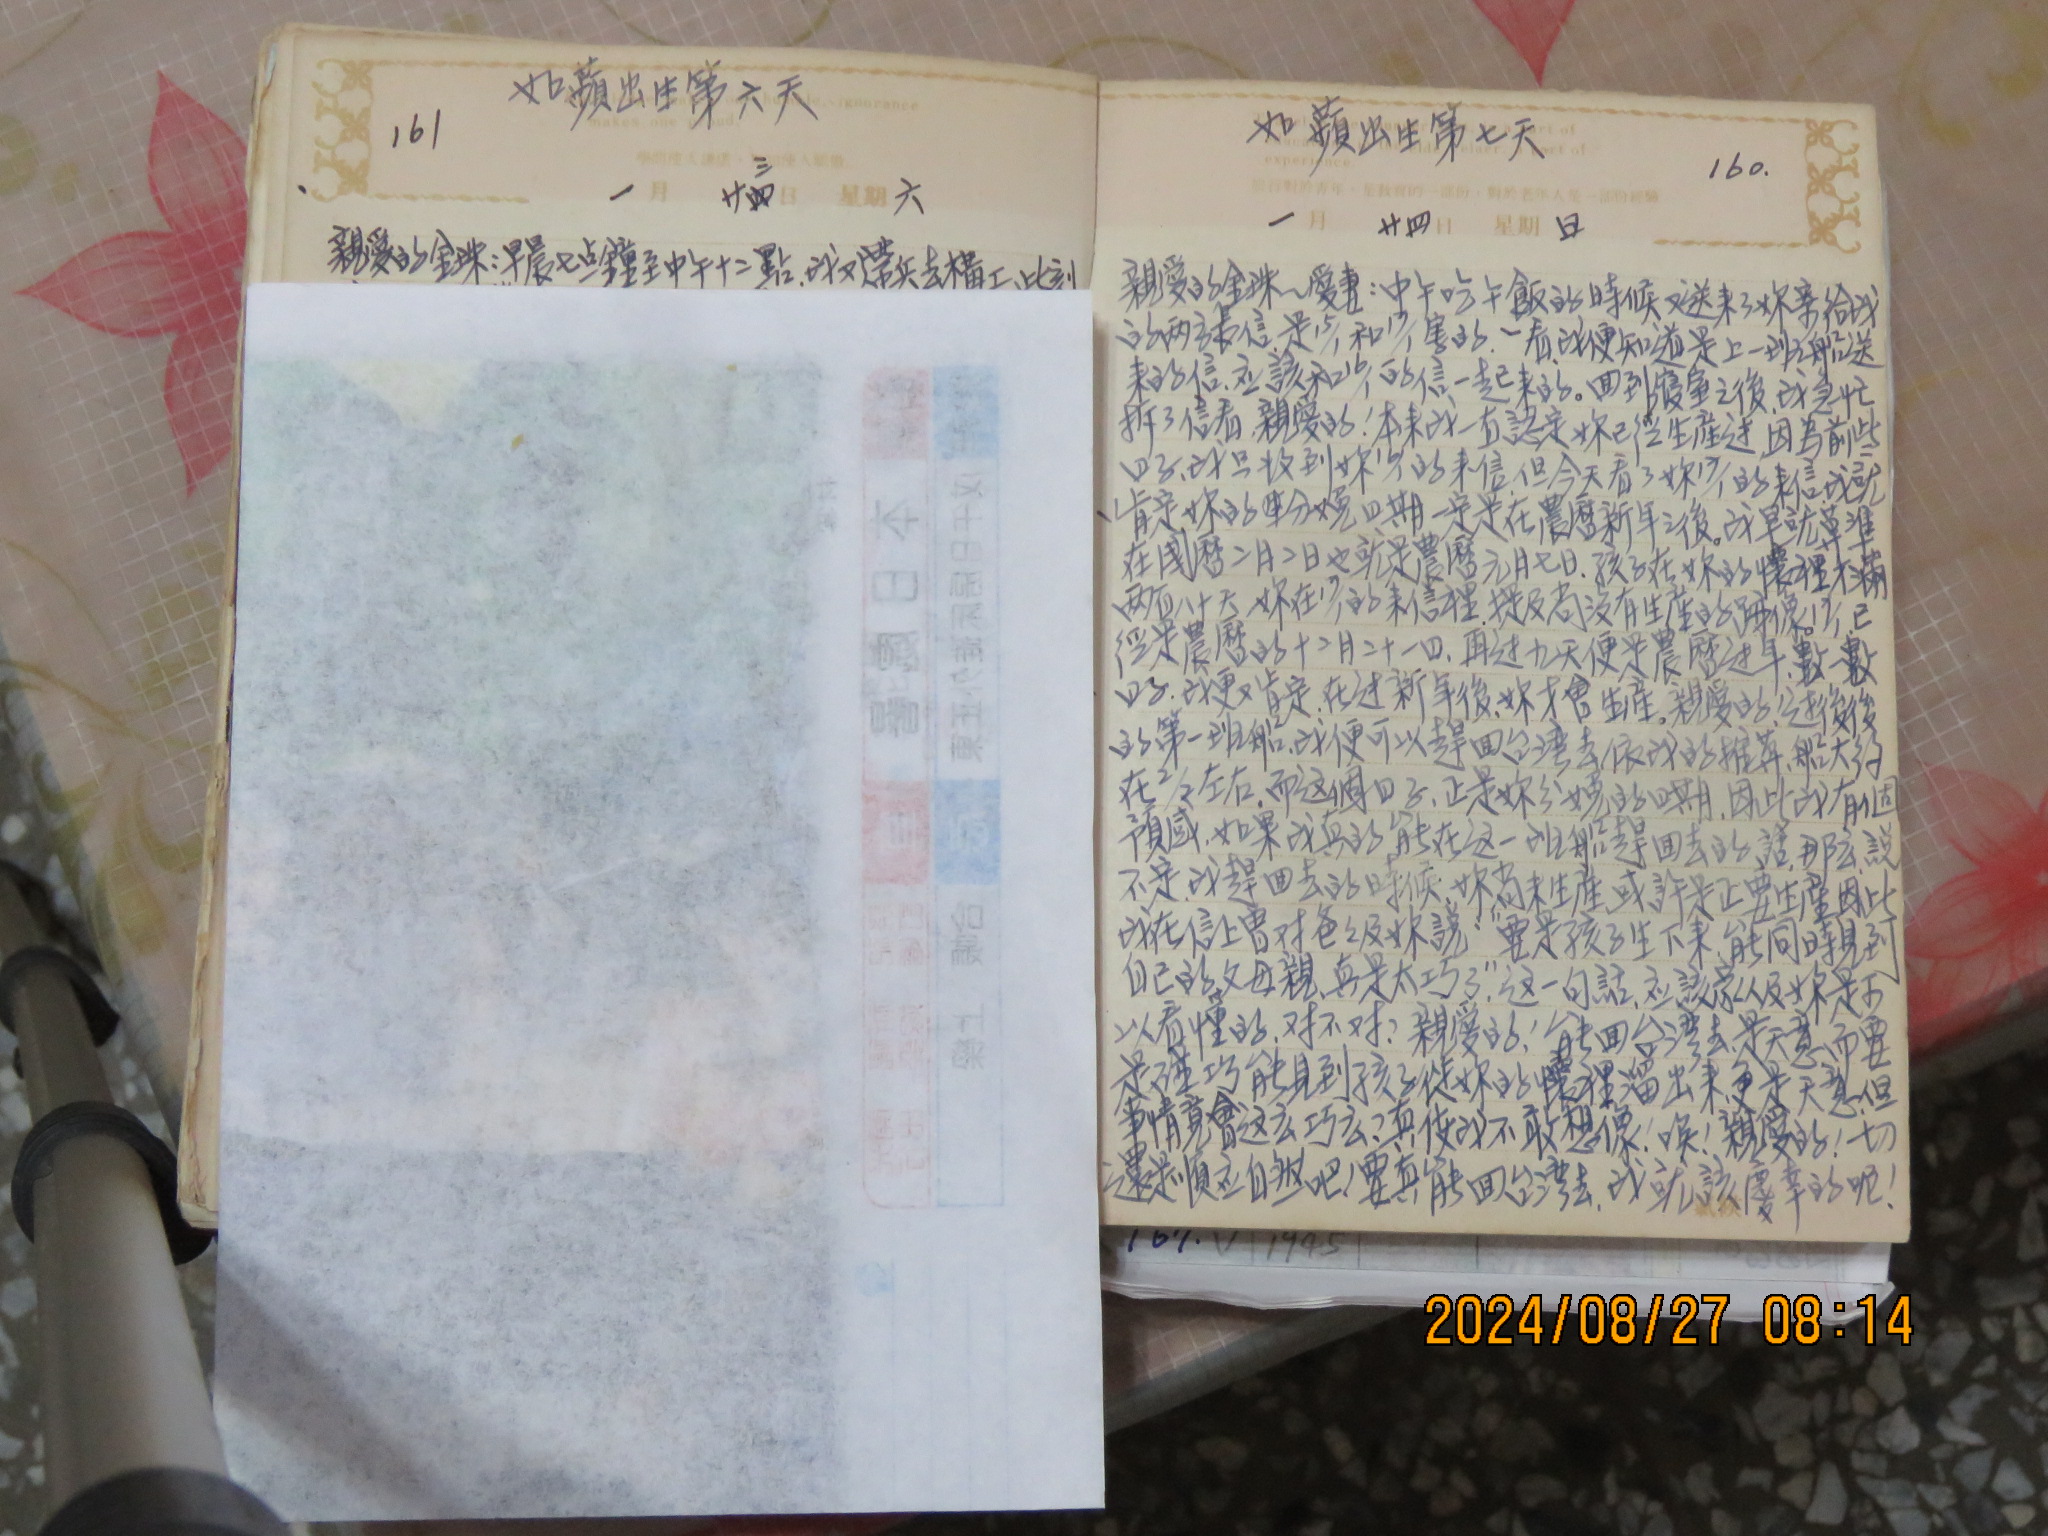 如蘋出生第六天
161
一月 廿三日 星期六
親愛的金珠:早晨七点鐘至中午十二點,我又帶兵去構工,此刻
如蘋出生第七天
160.
一月 廿四日 星期日
親愛的金珠~愛妻:中午吃午飯的時候又送來了妳寄給我
的兩封信,是15/1和17/1寫的,一看,我便知道是上一班船送
來的信,应該和16/1的信一起來的。回到寢室之後,我急忙
拆了信看,親愛的!本來我一直認定妳已經生産过,因為前些
日子,我只收到妳的來信,但今天看了妳17/1的來信,我就
肯定妳的分娩日期一定是在農曆新年之後。我早就算準
在國曆二月二日也就是農曆元月七日,孩子在妳的懷裡才滿
兩百八十天,妳在17/1的來信裡,提及尚没有生産的跡像。已
經是農曆的十二月二十一日,再过九天便是農曆过年,數一數
日子,我更又肯定,在过新年後,妳才會生産。親愛的,过後後
的第一班船,我便可以趕回台湾去,依我的推算,船大約
在2/2左右,而这個日子,正是妳分娩的日期,因此我有個
預感,如果我真的能在这一班船趕回去的話,那么,說
不定,我趕回去的時候,妳尚未生産,或許是正要生産,因此
我在信上曾对爸以及妳說:"要是孩子生下來,能同時見到
自己的父母親,真是太巧了",这一句話,应該爸以及妳是可
以看懂的,对不对?親愛的!能回台湾去,是天意,而要
是碰巧能見到孩子從妳的懷裡溜出來,更是天意,但
事情竟會这么巧么?真使我不敢想像!唉!親愛的!一切
還是順应自然吧!要真能回台湾去,我就該慶幸的呢!
1945
2024/08/27 08:14